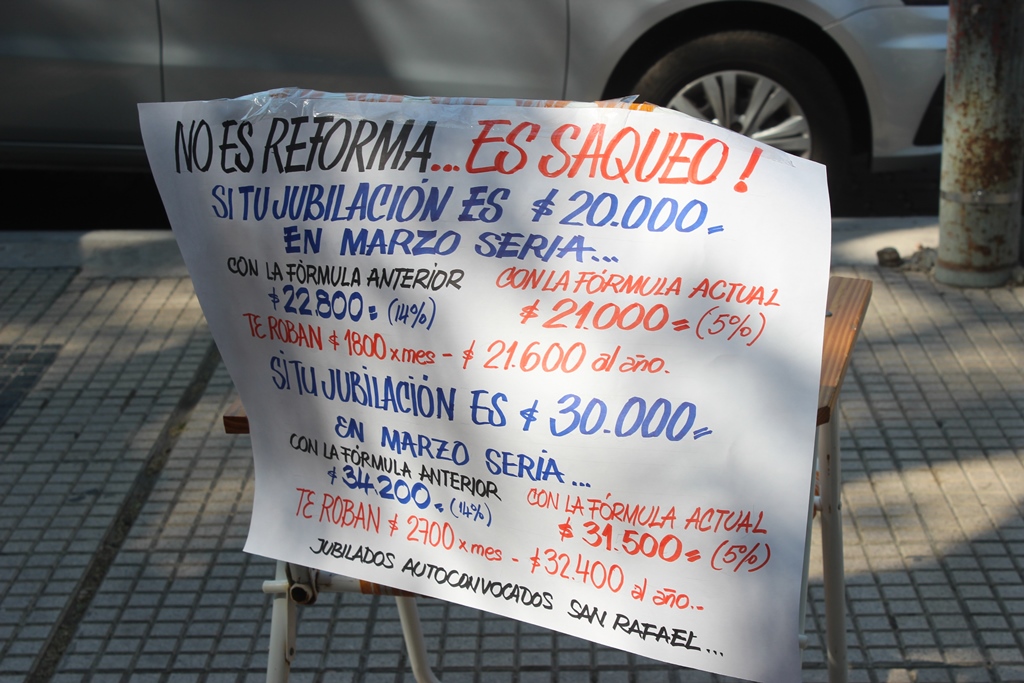 NO ES REFORMA... ES SAQUEO!
SI TU JUBILACIÓN ES $20.000=
EN MARZO SERIA...
CON LA FÒRMULA ANTERIOR
$22.800= (14%)
CON LA FÓRMULA ACTUAL
$21.000= (5%)
TE ROBAN $1800 x mes - $21.600 al año.
SI TU JUBILACIÓN ES $30.000=
EN MARZO SERÍA...
CON LA FÓRMULA ANTERIOR
$34.200= (14%)
CON LA FÓRMULA ACTUAL
$31.500= (5%)
TE ROBAN $2700 x mes - $32.400 al año.-
JUBILADOS AUTOCONVOCADOS SAN RAFAEL...